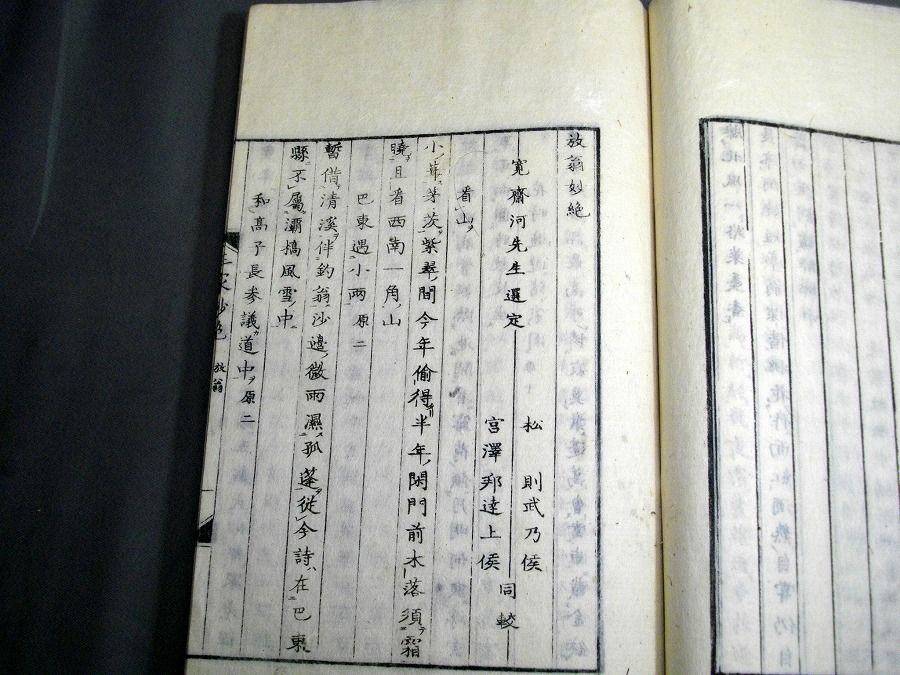 放翁妙絶
寛齋河先生選定
松 則武乃侯
宮澤邦達上侯
同較
看山
小葺茅茨紫翠間今年偷得半年閑門前木落須霜
曉且看西南一角山
巴東遇小雨 原二
暫借清溪伴釣翁沙邊微雨濕孤蓬從今詩在巴東
縣不屬灞橋風雪中
和高子長参議道中 原二
放翁